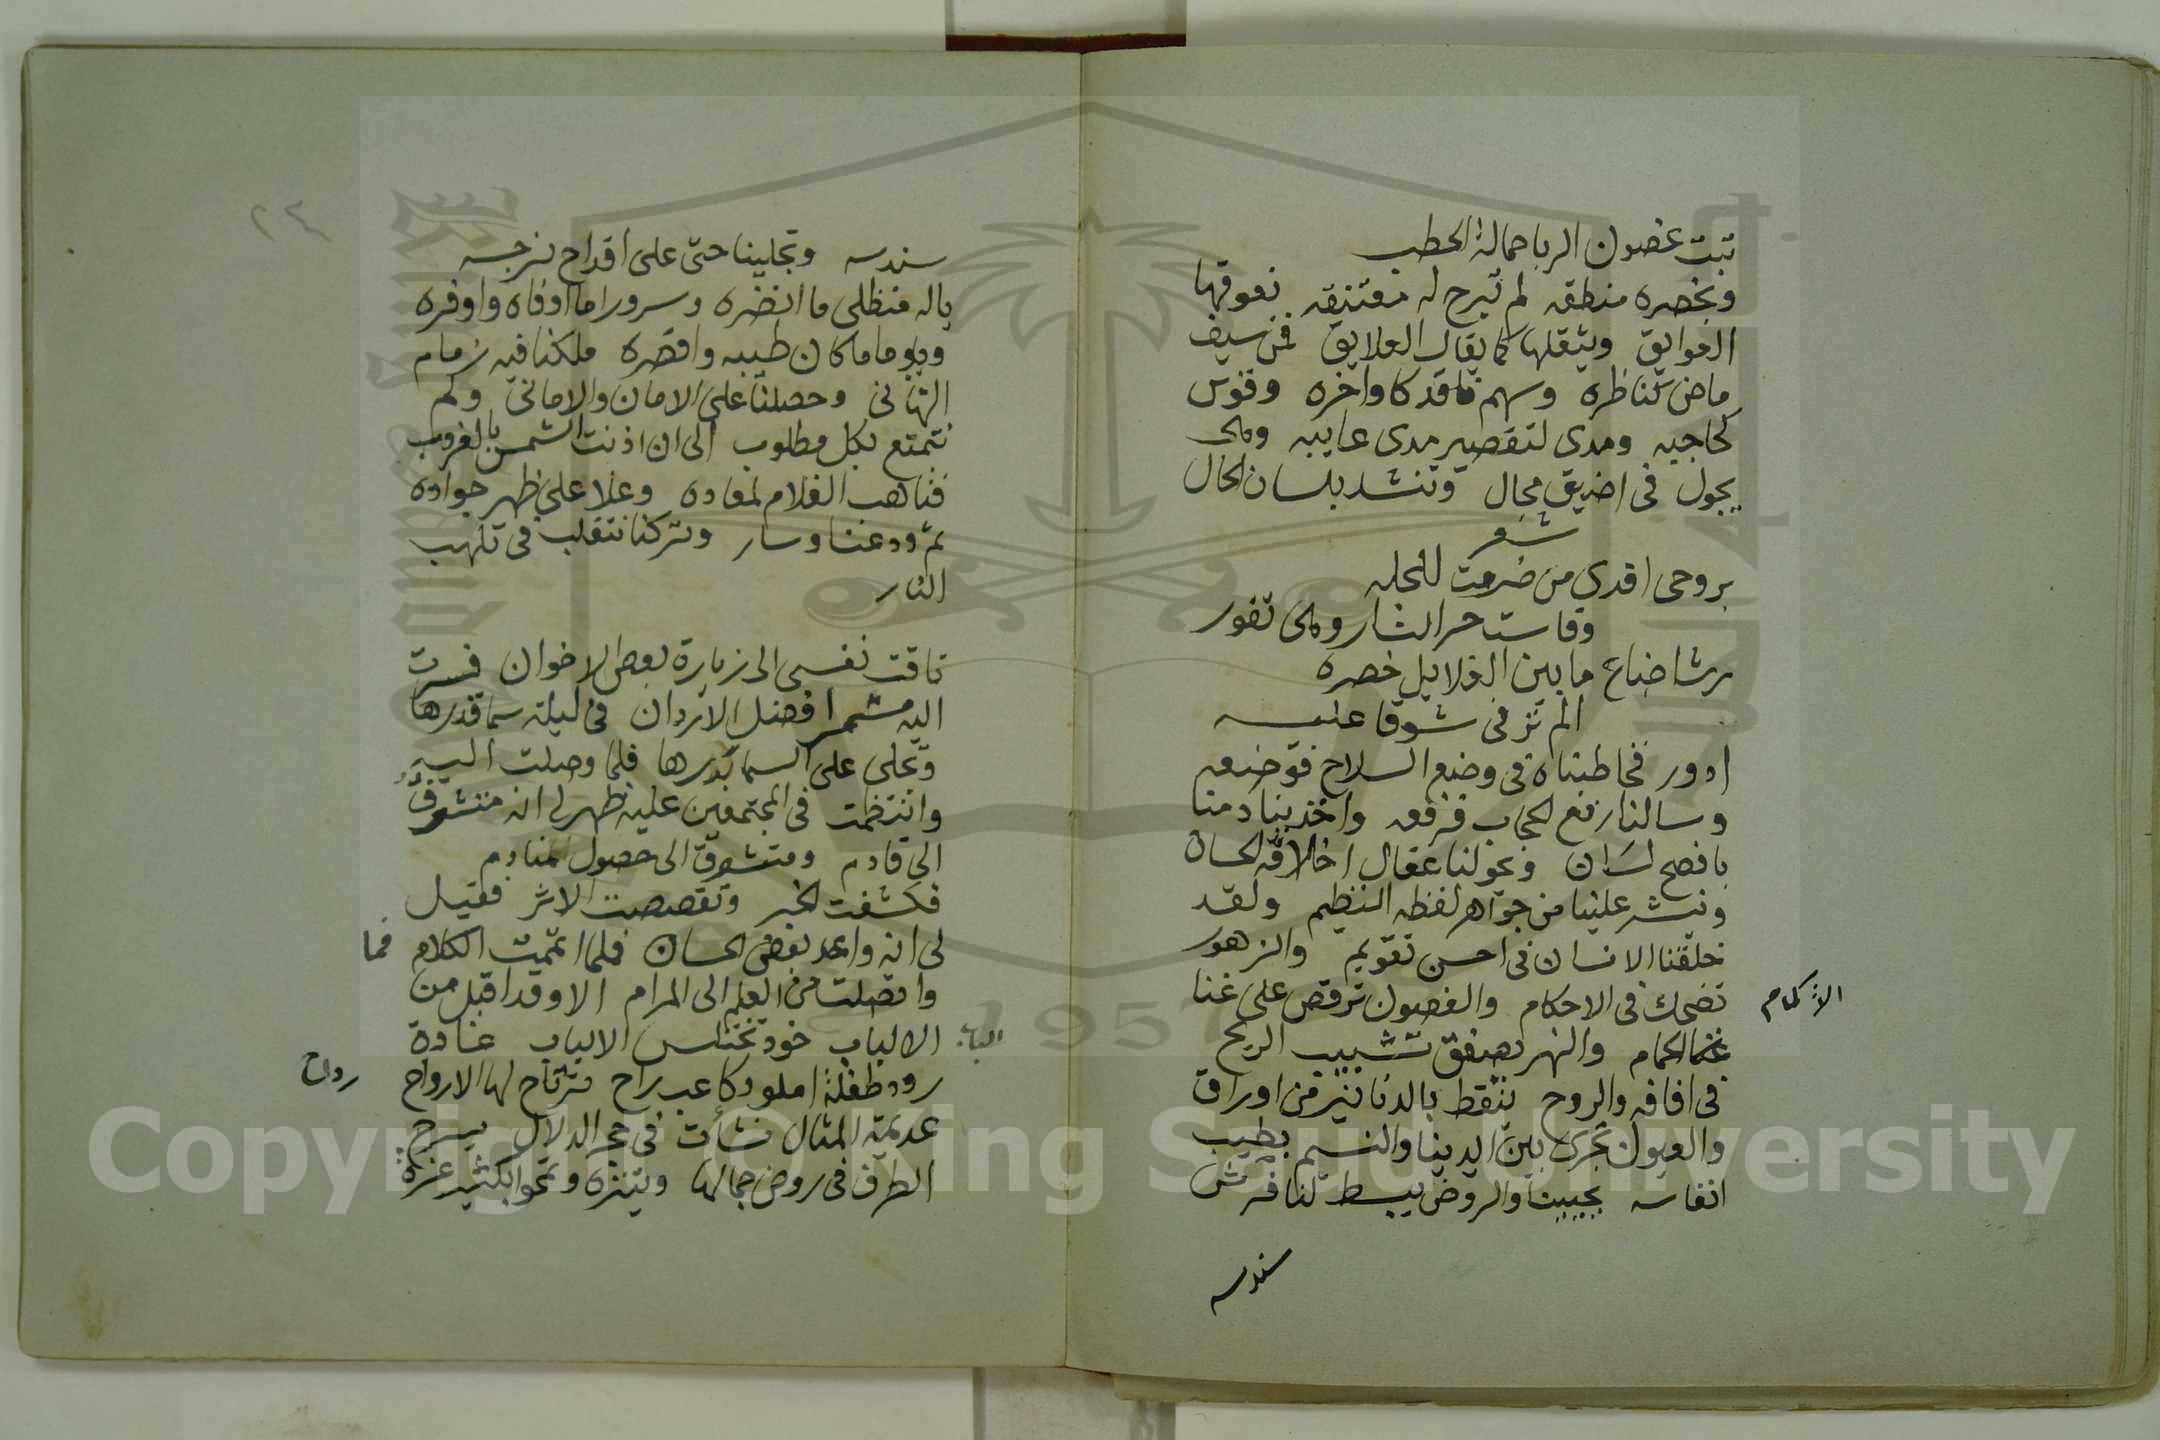 تبت غصون الربا حمالة الحطب
وبخصره منطقه لم تبرح له معتنقه تعوقها
العوايق ويثقلها كما يقال العلايق فمن سيف
ماض كناظره وسهم نافد كاواخره وقوس
كحاجبه ومدى لتقصير مدى عايبه
يجول فى اضيق مجال وتنشد بلسان الحال
شعر
بروحى افدى من ضرمت لاجله
وقاست حر النار وهى تفور
رشا ضاع ما بين الغلايل خصره
الم ترنى شوقا عليه
ادور فخاطبناه فى وضع السلاح فوضعه
وسالنا رفع الحجاب فرفعه واخذ ينادمنا
بافصح لسان ويحولنا عقال اخلاقه الحسان
وينشر علينا من جواهر لفظه النظيم ولقد
خلقنا الانسان فى احسن تقويم والزهور
تضحك فى الاحكام والغصون ترقص على غنا
الاكمام
الحمام والنهر يصفق تشبيب الريح
فى افاقه والروح ينقط بالدنانير من اوراق
والعيون تجرى بين ايدينا والنسيم بطيب
انفاسه يحيينا والروض يبسط لنا فرش
سندسه
٢٤
سندسه وتجلينا حتى على اقداح نرجسه
ياله منظلى ما انضره وسرورا ما اوفاه واوفره
ويوما ما كان طيبه واقصره ملكنا فيه زمام
التهانى وحصلنا على الامان والامانى ولم
نتمتع بكل مطلوب الى ان اذنت الشمس بالغروب
فتاهب الغلام لمعاده وعلا على ظهر جواده
ثم ودعنا وسار وتركنا نتقلب فى تلهب
النار
تاقت نفسى الى زيارة بعض الاخوان فسرت
اليه مشمرا فضل الاردان فى ليلة سما قدرها
وتجلى على السما بدرها فلما وصلت اليه
وانتظمت فى المجتمعين عليه ظهر لى انه متشوف
الى قادم ومتشوق الى حصول منادم
فكشفت الخبر وتقصصت الاثر فقيل
لى انه واعد بعض الحسان فلما اتممت الكلام فما
وافضلت من العلم الى المرام الا وقد اقبل من
الالباب خود تختلس الالباب غادة
الباب
رود طفلة املود كاعب راح ترتاح لها الارواح
رداح
عديمة المثال نشأت فى حجر الدلال يسرح
الطرف فى روض جمالها ويتنزه وتمحو بكثير عزة
Copyright © King Saud University
1957